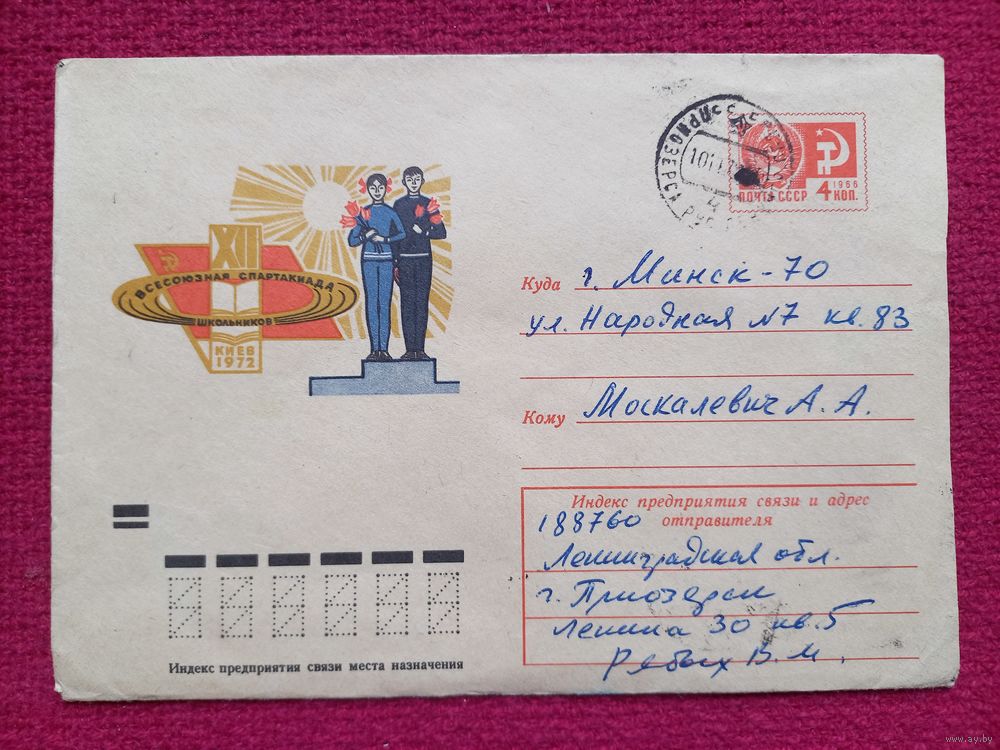 XII
ВСЕСОЮЗНАЯ СПАРТАКИАДА
ШКОЛЬНИКОВ
КИЕВ
1972
ПРИОЗЕРСК
ПОЧТА СССР
1966
4 КОП.
Куда г. Минск-70
ул. Народная №7 кв. 83
Кому Москалевич А. А.
Индекс предприятия связи и адрес
отправителя
188760
Ленинградская обл.
г. Приозерск
Ленина 30 кв. 5
Рябых В. М.
Индекс предприятия связи места назначения
www.ay.by